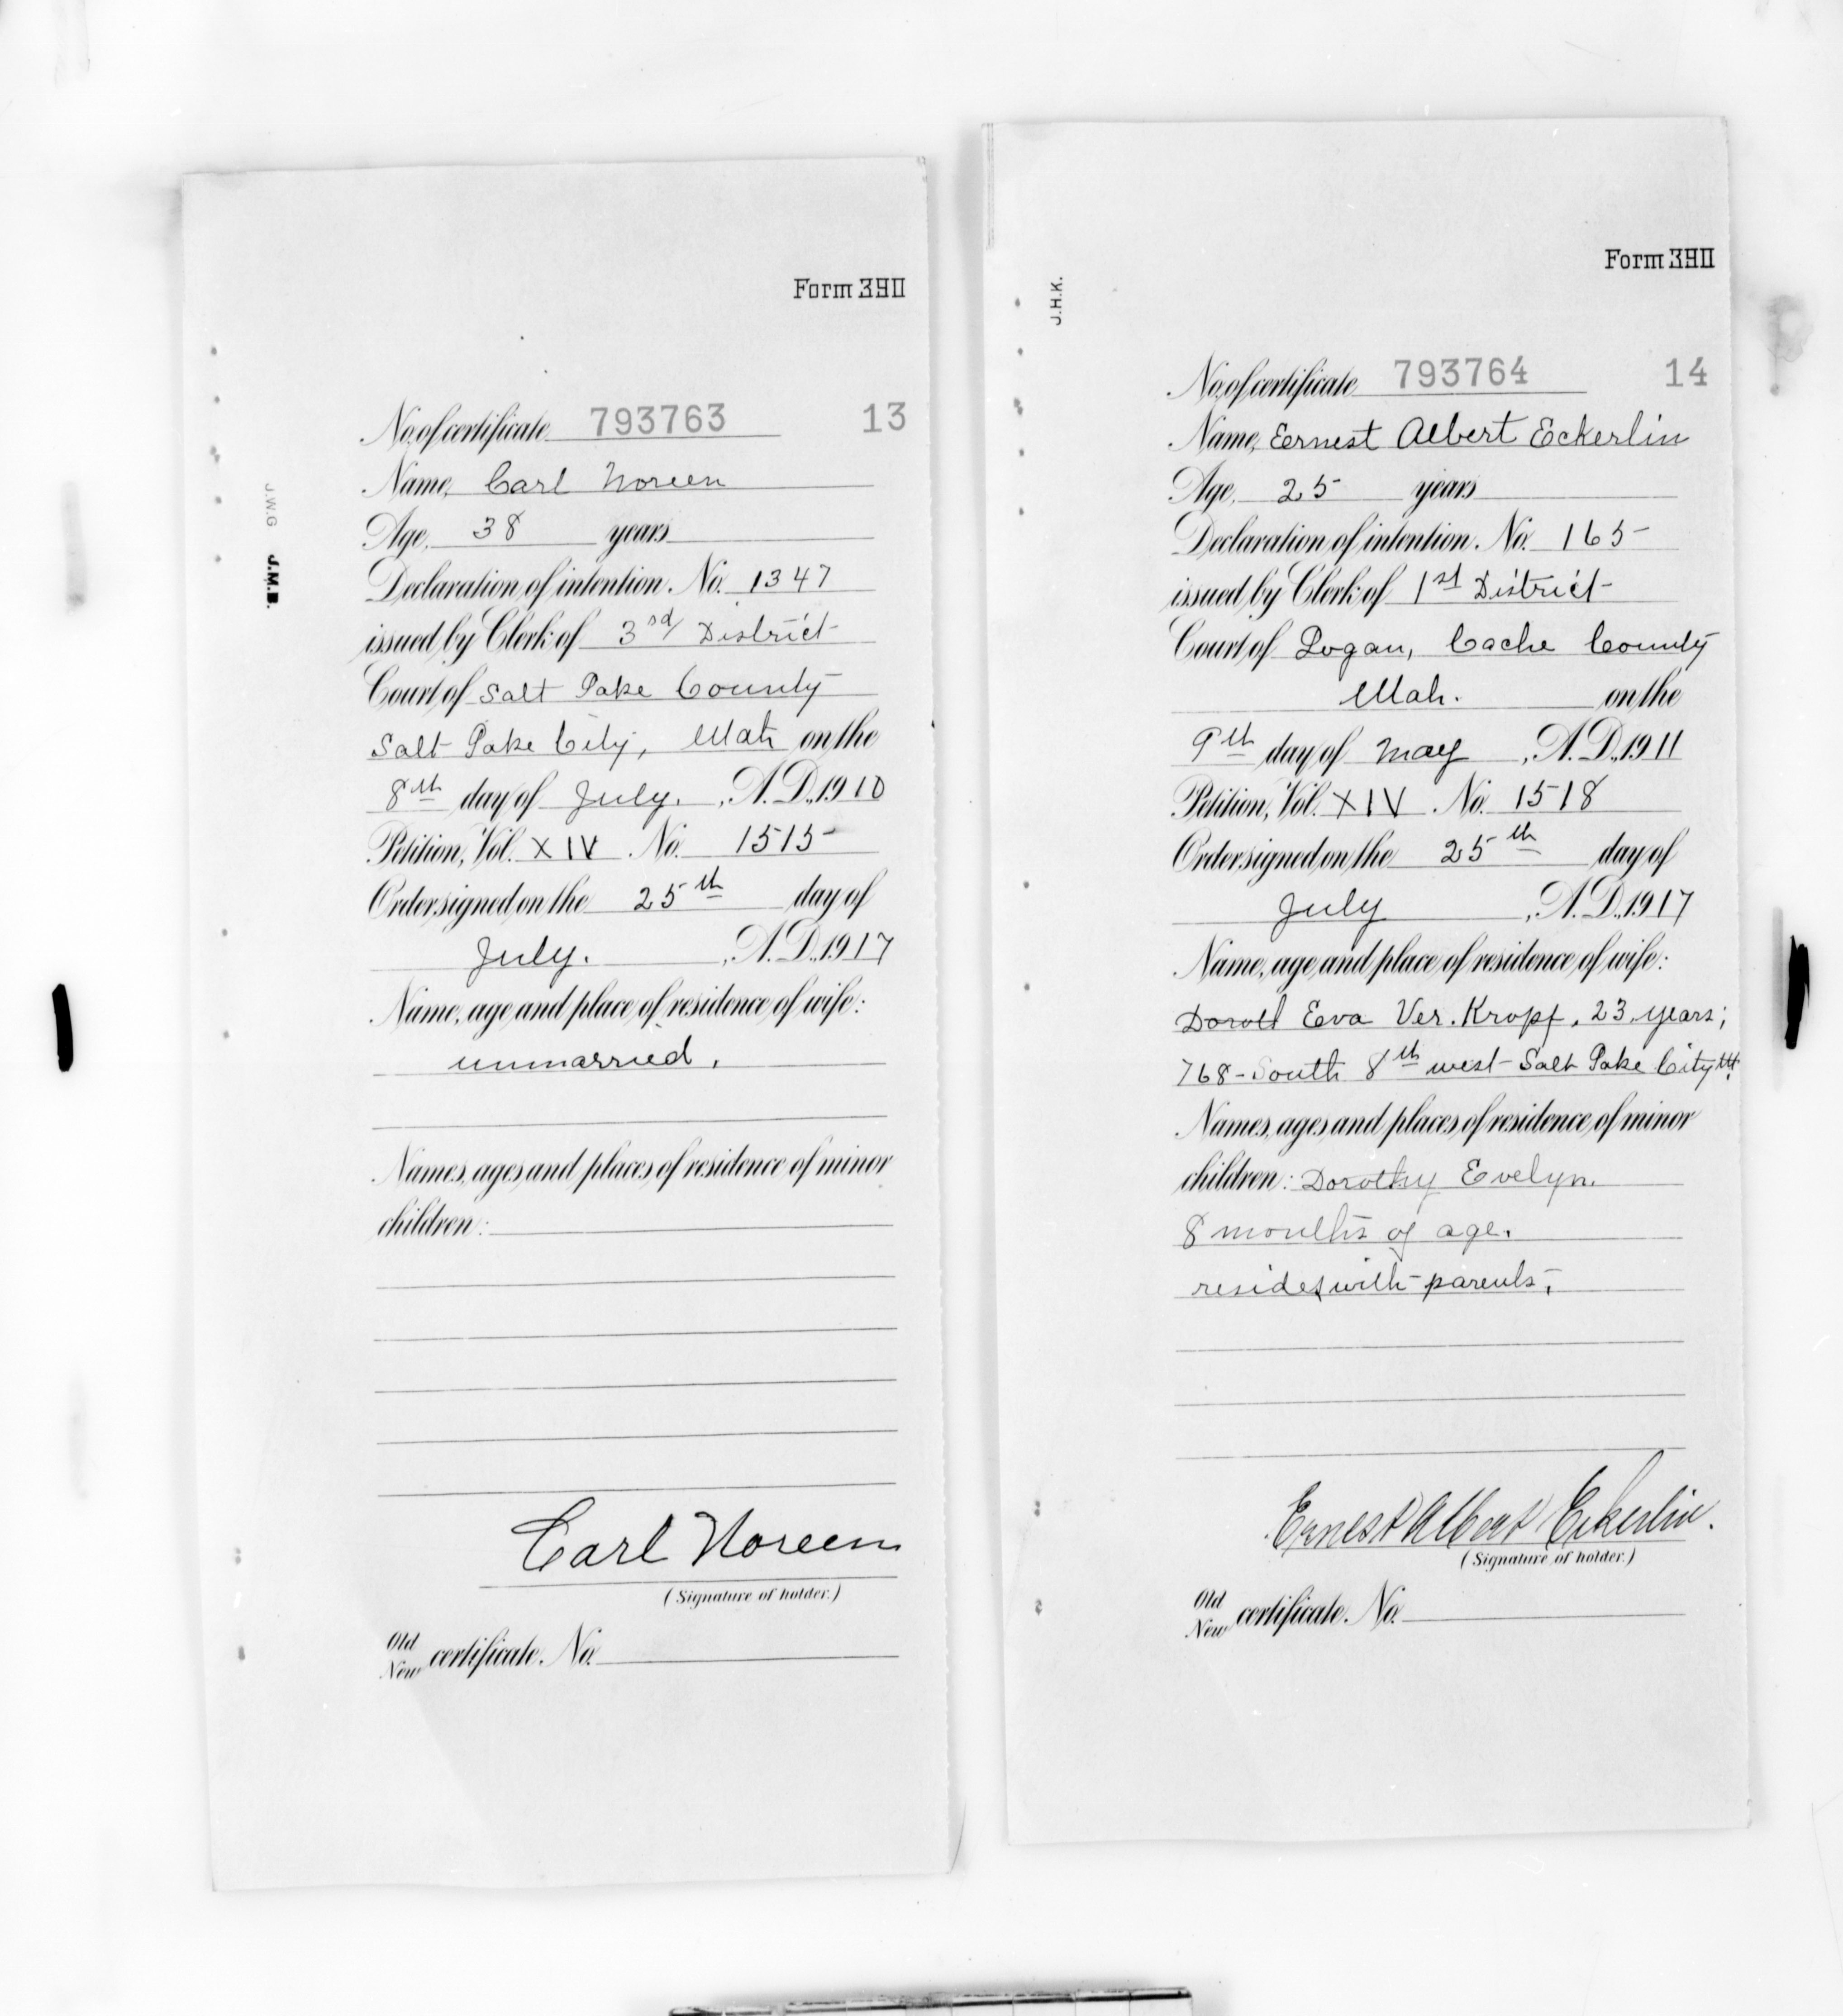 Form 390
J.W.G J.M.B.
No. of certificate 793763 13
Name, Carl Noreen
Age, 38 years
Declaration of intention. No. 1347
issued by Clerk of 3rd District
Court of Salt Lake County
Salt Lake City, Utah on the
8th day of July. , A.D. 1910
Petition, Vol. XIV . No. 1515
Order signed on the 25th day of
July. , A.D. 1917
Name, age and place of residence of wife:
unmarried.
Names, ages and places of residence of minor
children:
Carl Noreen
(Signature of holder.)
Old
New certificate. No.
Form 390
J.H.K.
No. of certificate 793764 14
Name, Ernest Albert Eckerlin
Age, 25 years
Declaration of intention. No. 165
issued by Clerk of 1st District
Court of Logan, Cache County
Utah. on the
9th day of May , A.D. 1911
Petition, Vol. XIV . No. 1518
Order signed on the 25th day of
July , A.D. 1917
Name, age and place of residence of wife:
Eva Ver. Kropf, 23 years;
768-South 8th west Salt Lake City Ut.
Names, ages and places of residence of minor
children: Dorothy Evelyn.
8 months of age.
resides with parents.
Ernest Albert Eckerlin.
(Signature of holder.)
Old
New certificate. No.